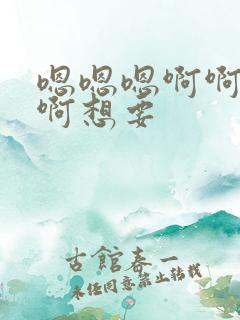 嗯嗯嗯啊啊
啊想要
古館春一
未经同意禁止转载